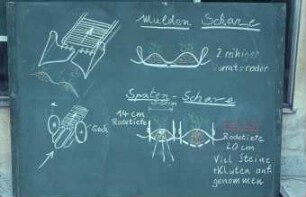 Mulden Schare
2 reihiger
Vorratsroder
Spaten - Schare
14 cm
Rodetiefe
Rodetiefe
20 cm
Viel Steine
+ Kluten auf-
genommen